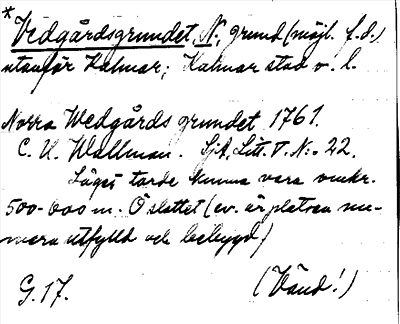 * Vedgårdsgrundet, N., grund (möjl. f.d.)
utanför Kalmar; Kalmar stad o. l.
Norra Wedgårds grundet 1761.
C. U. Wallman. Sjk, Litt. T. N:o 22.
Läget torde kunna vara omkr.
500-600 m. Ö slottet (ev. är platsen nu-
mera utfylld och bebyggd)
G. 17. (Vänd!)